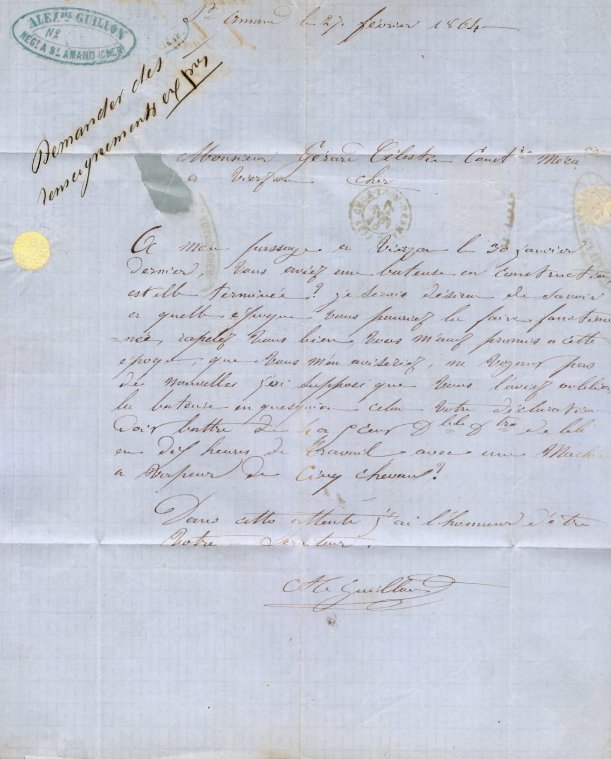 ALEX^DRE GUILLON
N^o
NEG^t A S^t AMAND (CHER)
S^t Amand le 27 février 1864
Demander des
renseignements et prix
Monsieur Gérard Célestin Const^r Méca^en
a Vierzon Cher
A mon passage a Vierzon le 30 janvier
dernier, vous aviez une bateuse en construction
est elle terminée? je serais désireu de savoir
a quelle époque vous pouriez la faire fonction
née, vous bien, vous m'avez promis a cette
époque, que vous m'en aviseriez, ne voyant pas
de nouvelles j'ai supposé que vous l'aviez oublier
la bateuse en question celon votre déclaration
doit battre de 4 a 5 ceux D^ble D^tre de blé
en dix heures de travail avec une Machine
a vapeur de Cinq chevaux?
Dans cette attente j'ai l'honneur d'être
votre Serviteur.
Al^e Guillon